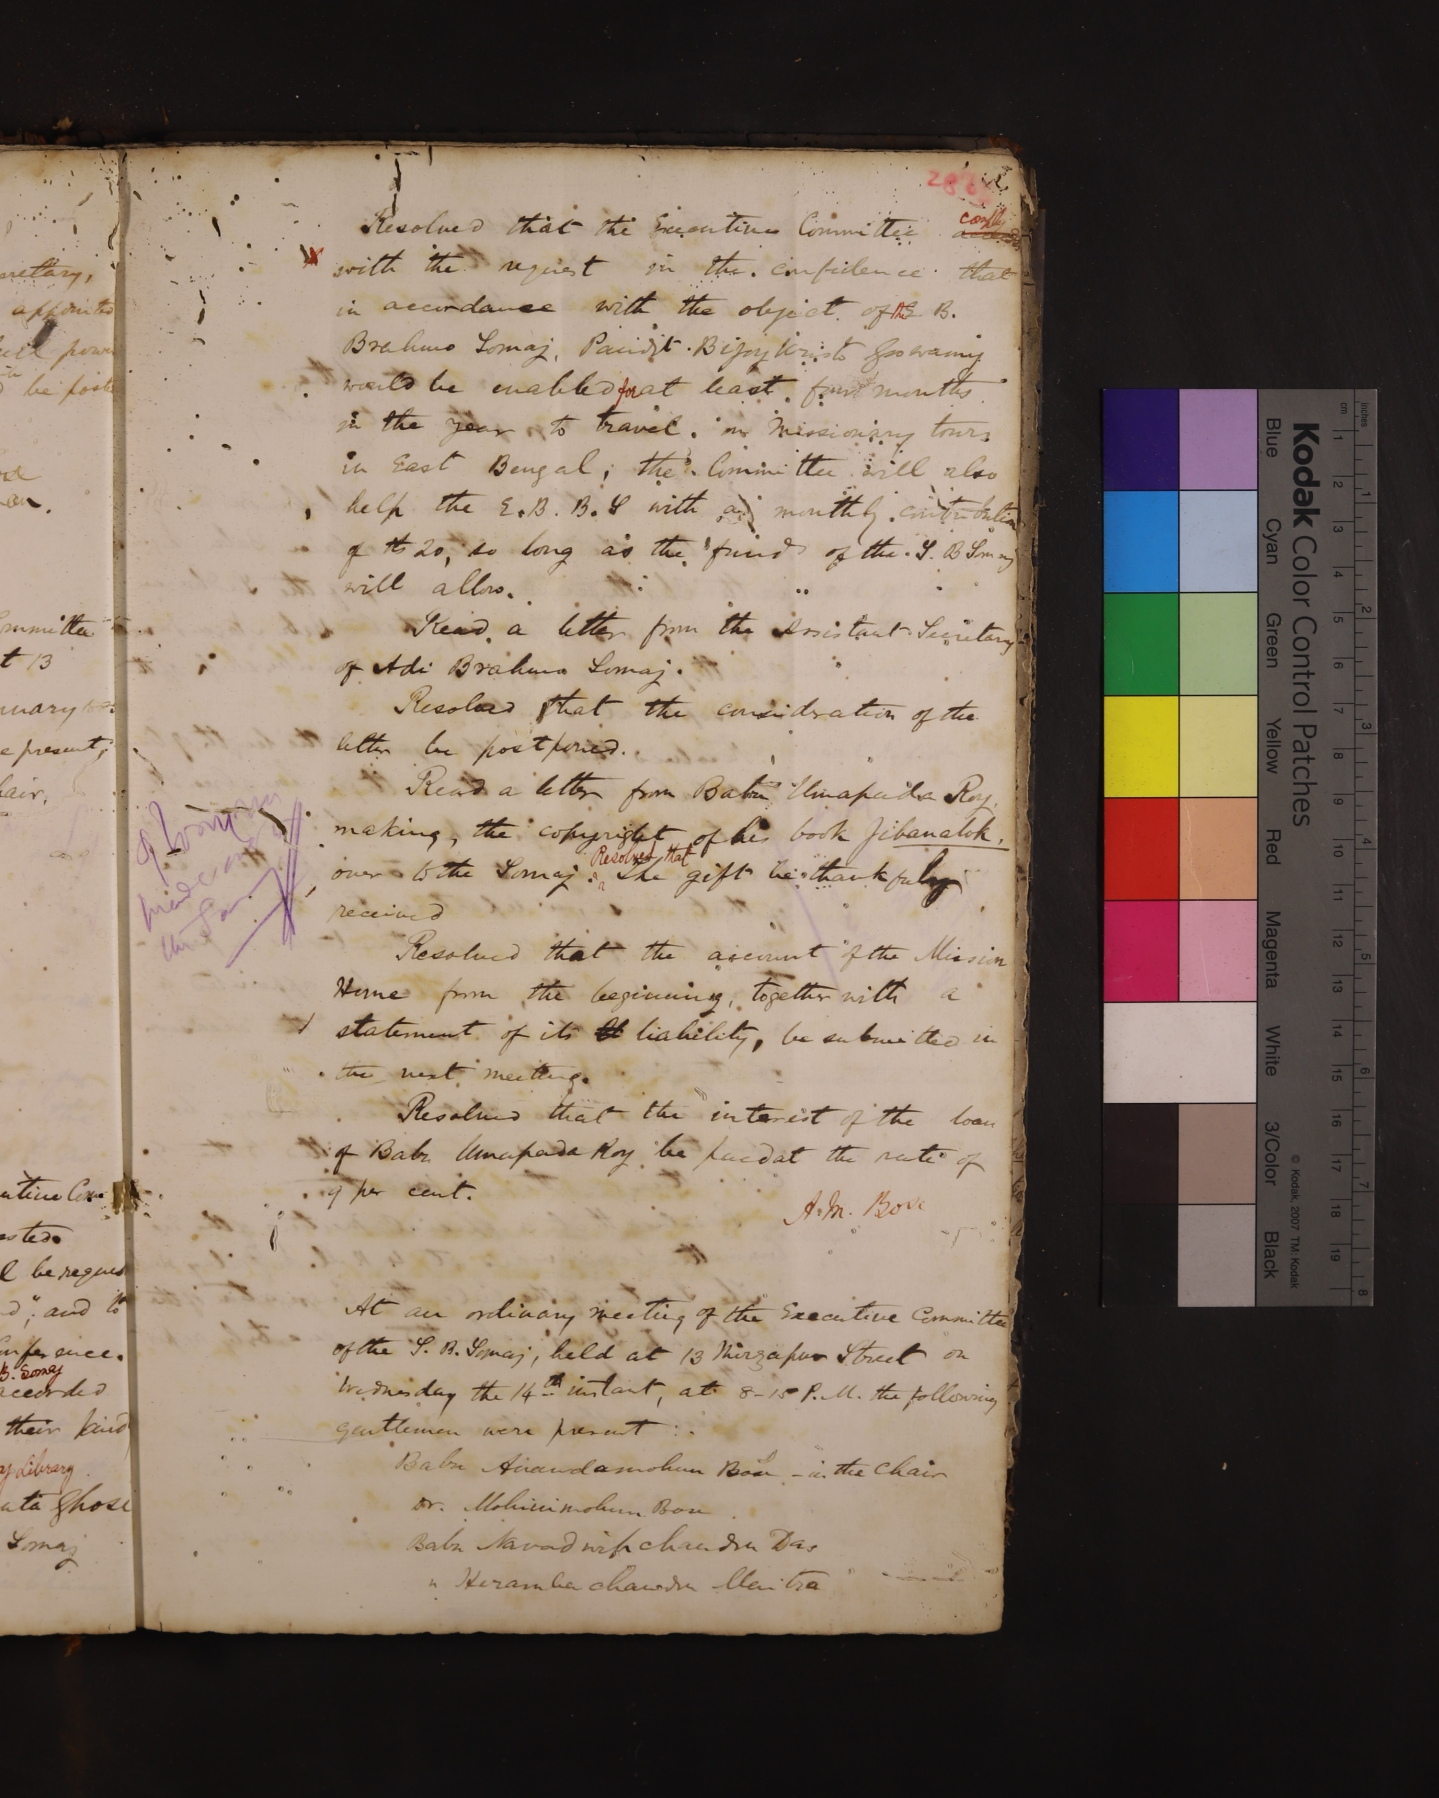 Resolved that the Executive Committee comply
with the request in the confidence that
in accordance with the object of the E B.
Brahmo Somaj, Pandit Bijoy Kristo Goswamy
would be enabled for at least four months
in the year to travel on Missionary tours
in East Bengal; the Committee will also
help the E. B. B. S with a monthly contribution
of Rs 20, so long as the fund of the S. B Somaj
will allow.
Read a letter from the Assistant Secretary
of Adi Brahmo Somaj.
Resolved that the consideration of the
letter be postponed.
Read a letter from Babu Umapada Roy
making, the copyright of his book Jibanalok,
over to the Somaj. Resolved that The gift be thankfuly
received
Resolved that the account of the Mission
Home from the beginning, together with a
statement of its liability, be submitted in
the next meeting.
Resolved that the interest of the loan
of Babu Umapada Roy be paid at the rate of
9 per cent.
A. M. Bose
At an ordinary meeting of the Executive Committee
of the S. B. Somaj, held at 13 Mirzapur Street on
Wednesday the 14th instant, at 8-15 P. M. the following
gentlemen were present :
Babu Anandamohun Bose - in the Chair
Dr. Mohinimohun Bose
Babu Navadwip chandra Das
" Heramba chandra Maitra
cretary,
appointed
full power
be poste
Committee
t 13
nuary
e present;
hair,
cutive Com
ested.
l be reques
d"; and to
Conference.
B. Somaj
accorded
their kind
y Library
ata Ghose
Somaj
Kodak Color Control Patches
Blue Cyan Green Yellow Red Magenta White 3/Color Black
© Kodak, 2007 TM: Kodak
inches 1 2 3 4 5 6 7 8
cm 1 2 3 4 5 6 7 8 9 10 11 12 13 14 15 16 17 18 19